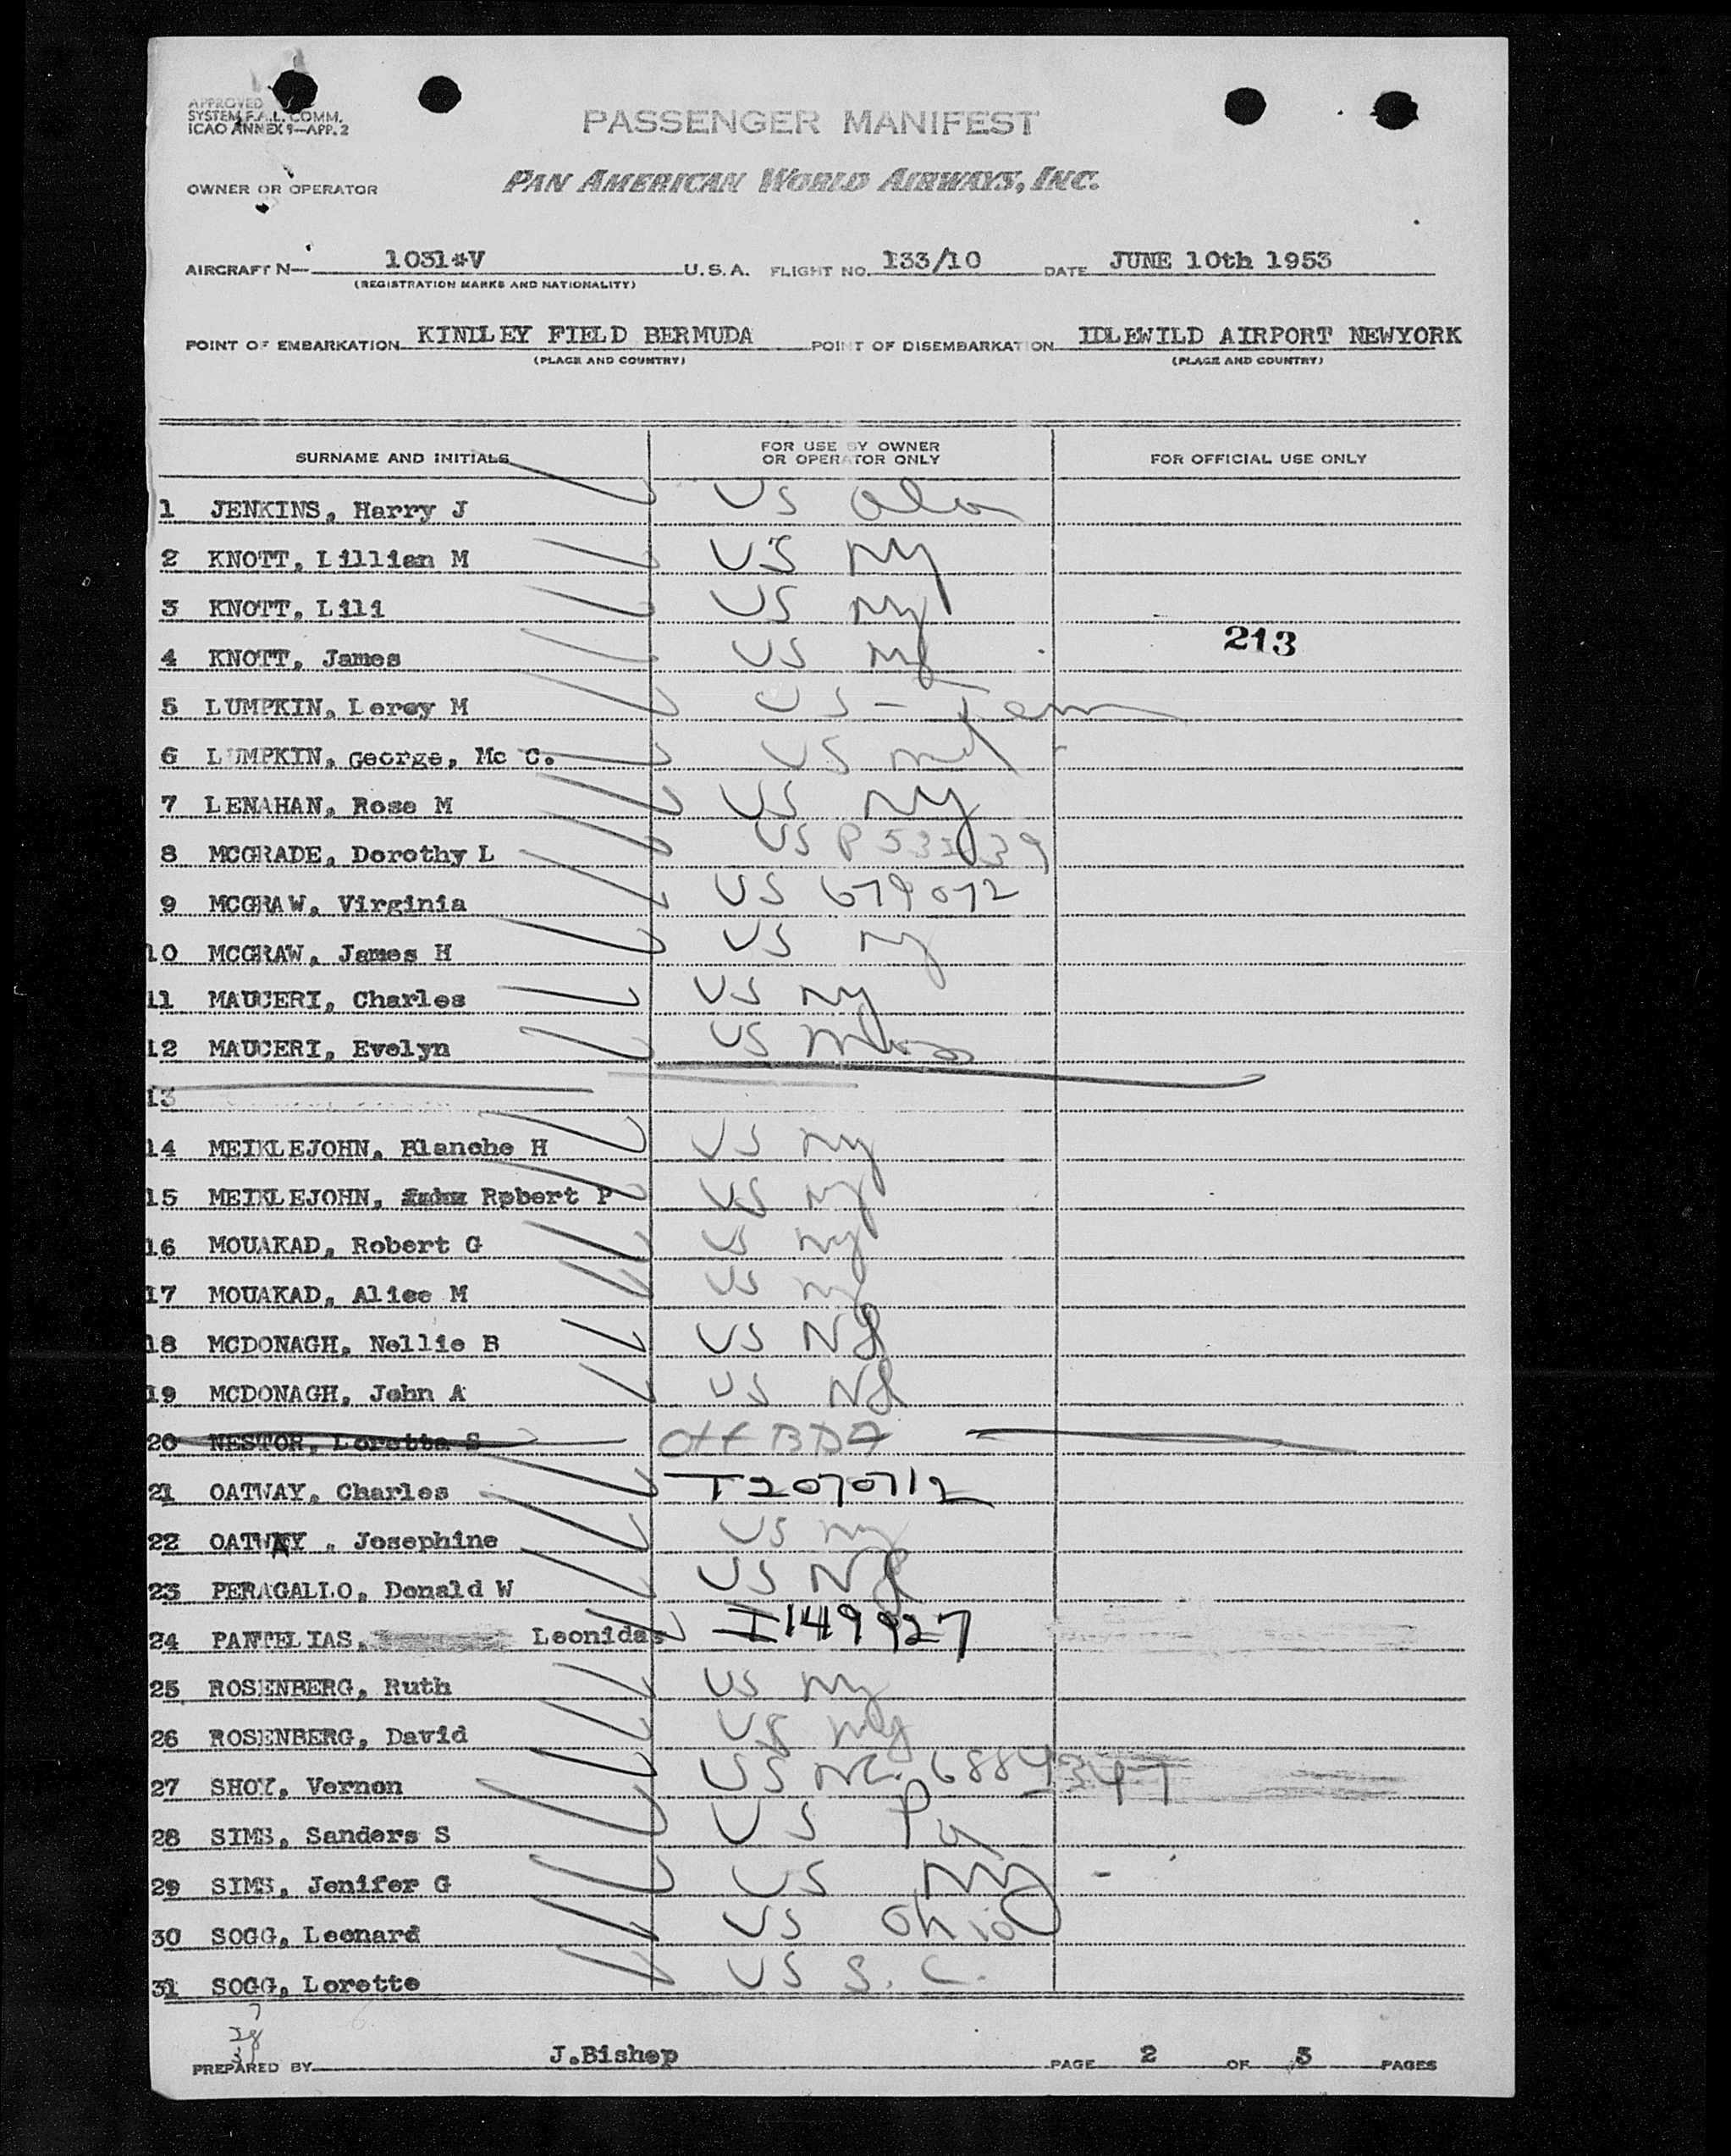 APPROVED
SYSTEM F.A.L. COMM.
ICAO ANNEX 9—APP. 2
PASSENGER MANIFEST
OWNER OR OPERATOR PAN AMERICAN WORLD AIRWAYS, INC.
AIRCRAFT N— 1031*V U.S.A. FLIGHT NO. 133/10 DATE JUNE 10th 1953
(REGISTRATION MARKS AND NATIONALITY)
POINT OF EMBARKATION KINDLEY FIELD BERMUDA POINT OF DISEMBARKATION IDLEWILD AIRPORT NEWYORK
(PLACE AND COUNTRY) (PLACE AND COUNTRY)
SURNAME AND INITIALS FOR USE BY OWNER OR OPERATOR ONLY FOR OFFICIAL USE ONLY
1 JENKINS, Harry J US Ala
2 KNOTT, Lillian M US NY
3 KNOTT, Lili US NY
213
4 KNOTT, James US NY
5 LUMPKIN, Leroy M US - Tenn
6 LUMPKIN, George, Mc C. US Md
7 LENAHAN, Rose M US NY
8 MCGRADE, Dorothy L US
9 MCGRAW, Virginia US 679072
10 MCGRAW, James H US NY
11 MAUCERI, Charles US NY
12 MAUCERI, Evelyn US Mass
13
14 MEIKLEJOHN, Blanche H US NY
15 MEIKLEJOHN, Robert P US NY
16 MOUAKAD, Robert G US NY
17 MOUAKAD, Alice M US NY
18 MCDONAGH, Nellie B US NJ
19 MCDONAGH, John A US NJ
20 NESTOR, Loretta S Off BDA
21 OATWAY, Charles T2070712
22 OATWAY, Josephine US NY
23 PERAGALLO, Donald W US NJ
24 PANTELIAS, Leonidas I149927
25 ROSENBERG, Ruth US NY
26 ROSENBERG, David US NY
27 SHOY, Vernon US
28 SIMS, Sanders S US Pa
29 SIMS, Jenifer G US NY
30 SOGG, Leonard US Ohio
31 SOGG, Lorette US S.C.
PREPARED BY J.Bishop PAGE 2 OF 3 PAGES